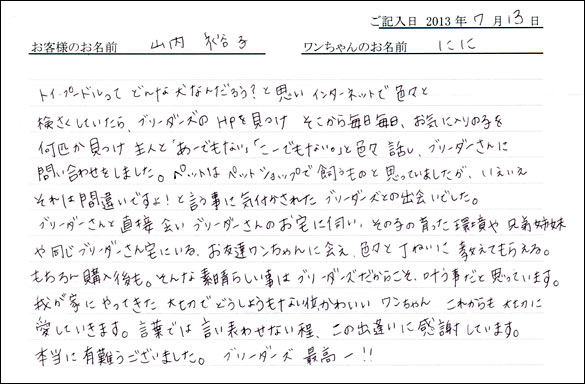 ご記入日 2013 年 7 月 13 日
お客様のお名前 山内 裕子 ワンちゃんのお名前 にに
トイ・プードルって どんな犬なんだろう?と思い インターネットで色々と
検さくしていたら、ブリーダーズのHPを見つけ そこから毎日毎日、お気に入りの子を
何匹か見つけ 主人と「あーでもない」「こーでもない。」と色々 話し、ブリーダーさんに
問い合わせをしました。ペットは ペットショップで飼うものと思っていましたが、いえいえ
それは間違いですよ!と言う事に気付かされた ブリーダーズとの出会いでした。
ブリーダーさんと直接会い ブリーダーさんのお宅に伺い、その子の育った環境や兄弟姉妹
や同じブリーダーさん宅にいる、お友達ワンちゃんに会え、色々と丁ねいに 教えてもらえる。
もちろん購入後も。そんな素晴らしい事は ブリーダーズだからこそ、叶う事だと思っています。
我が家にやってきた 大切で どうしようもない位、かわいい ワンちゃん これからも 大切に
愛していきます。言葉では 言い表わせない程、この出逢いに感謝しています。
本当に有難うございました。 ブリーダーズ 最高ー!!